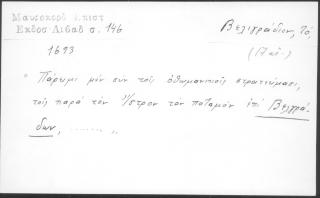 Μαυσεκού Ἐπιστ
Ἔκδοσ Λιβαδ σ. 146
Βελιγράδιον, Τό,
(17 αἰ.)
1693
" Πάρωμι μὲν σὺν τοῖς ὀθωμανικοῖς στρατεύμασι,
τοῖς παρὰ τὸν Ἴστρον τὸν ποταμὸν ἐπὶ Βελιγρά-
δων, ........ „